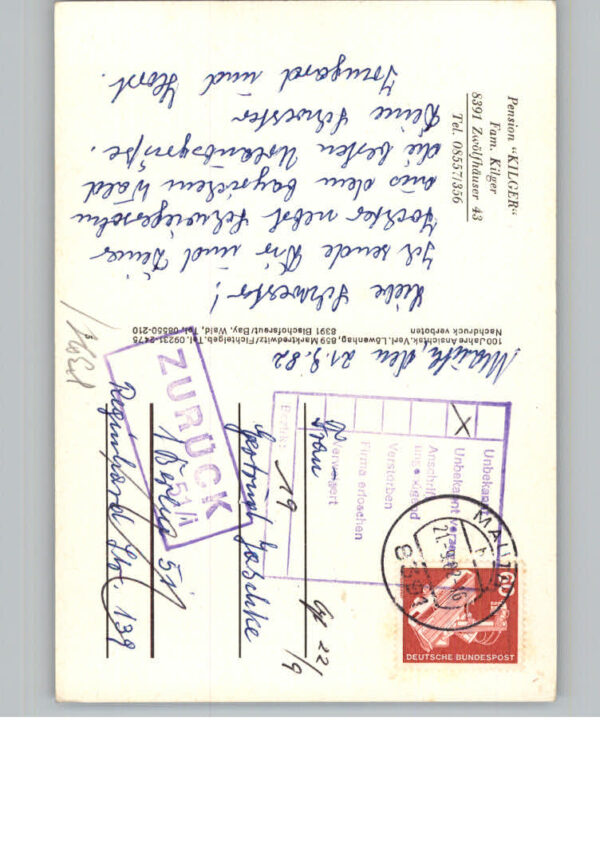 Pension "KILGER"
Fam. Kilger
8391 Zwölfhäuser 43
Tel. 08557/356
Mauth, den 21.9.82
Liebe Schwester!
Ich sende Dir und Deiner
Tochter nebst Schwiegersohn
aus dem bayrischen Wald
die besten Urlaubsgrüße.
Deine Schwester
Irmgard und Horst.
100 Jahre Ansichtsk. Verl. Löwenhag, 859 Marktredwitz/Fichtelgeb. Tel. 09231-2475
8391 Bischofsreut/Bay. Wald, Tel. 08550-210
Nachdruck verboten
MAUTH
21.-9.82-16
8391
60
DEUTSCHE BUNDESPOST
Unbekannt
Unbekannt verzogen
Anschrift
ungenügend
Verstorben
Firma erloschen
Verweigert
Bezirk:
19
X
22/9
ZURÜCK
51/1
Frau
Gertrud Jaschke
1 Berlin 51
Reginhard Str. 139